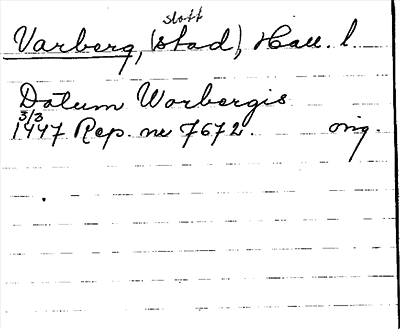 slott
Varberg, (stad), Hall. l.
Datum Warbergis
3/3
1447 Rep. nr 7672. orig.